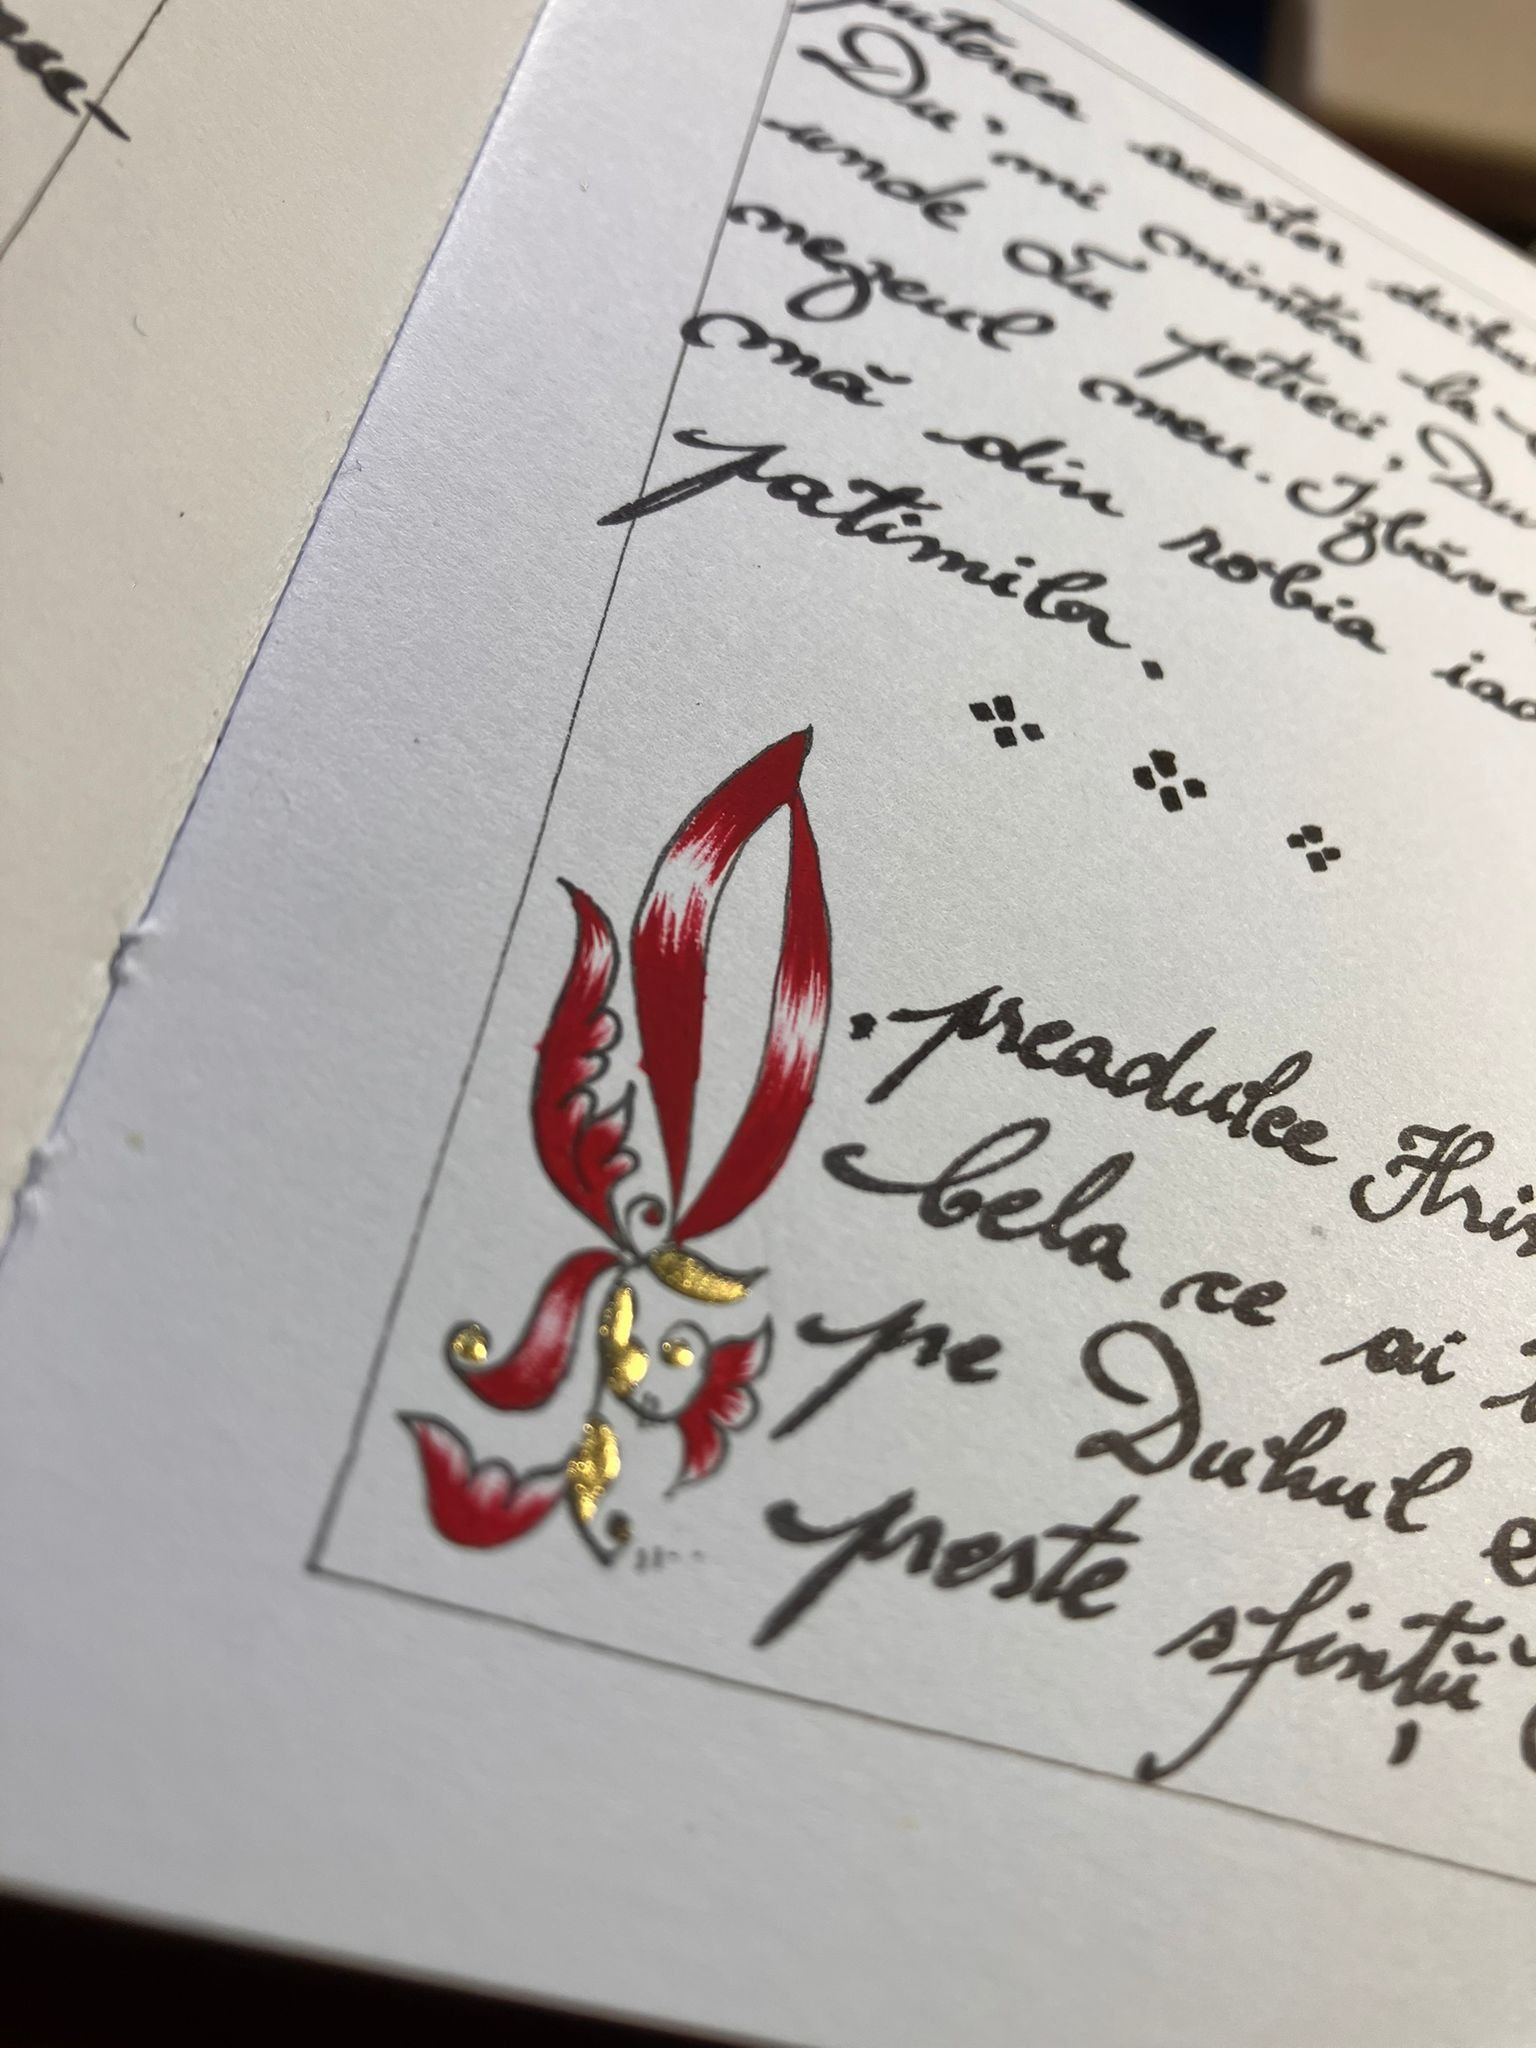 puterea acestor
Du-mi mintea la
unde Tu petreci, Du
nezeul meu. Izbăve
mă din robia iad
patimilor.
O, preadulce Hri
bela ce ai
pe Duhul
preste sfinții